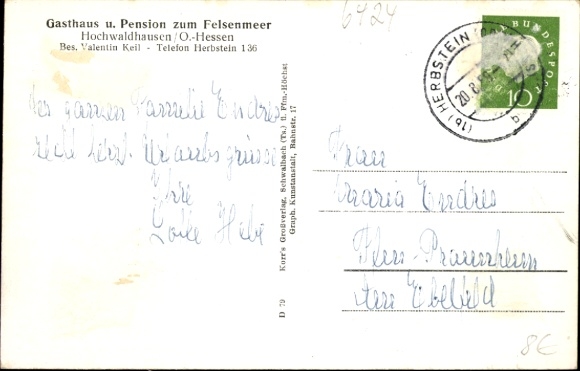 6424
Gasthaus u. Pension zum Felsenmeer
Hochwaldhausen/O.-Hessen
Bes. Valentin Keil - Telefon Herbstein 136
Der ganzen Familie Endres
recht herzl. Urlaubsgrüsse
Ihre
Korr's Großverlag, Schwalbach (Ts.) ü. Ffm.-Höchst
Graph. Kunstanstalt, Bahnstr. 17
D 79
(16) HERBSTEIN
20.8.
BUNDESPOST
10
Frau
Maria Endres
Ffm-Praunheim
Am Ebelfeld
8€